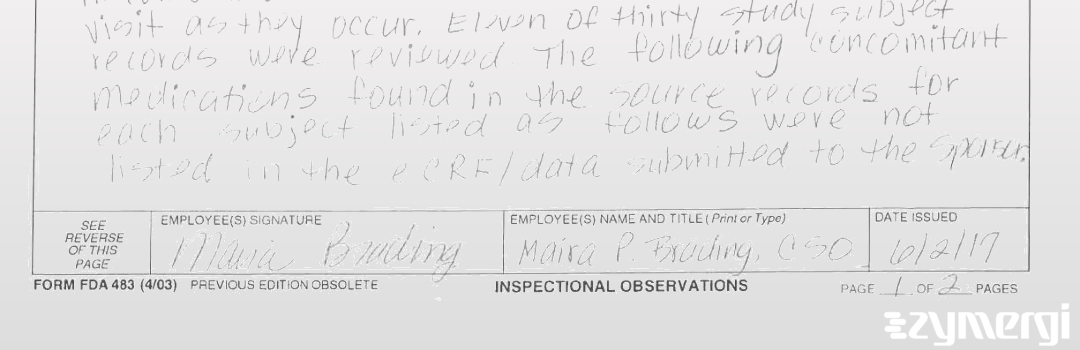 visit as they occur. Eleven of thirty study subject
records were reviewed. The following concomitant
medications found in the source records for
each subject listed as follows were not
listed in the eCRF/data submitted to the Sponsor.
SEE
REVERSE
OF THIS
PAGE
EMPLOYEE(S) SIGNATURE
Maira Brading
EMPLOYEE(S) NAME AND TITLE (Print or Type)
Maira P. Brading, CSO
DATE ISSUED
6/2/17
FORM FDA 483 (4/03) PREVIOUS EDITION OBSOLETE INSPECTIONAL OBSERVATIONS PAGE 1 OF 2 PAGES
zymergi